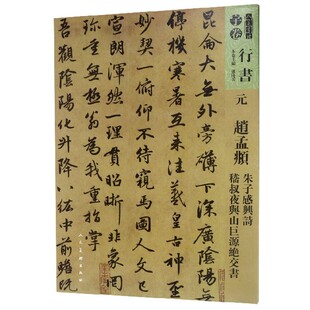 子卷
行書
元
趙孟頫
朱子感興詩
嵇叔夜與山巨源絕交書
昆侖大無外旁礴下深廣陰陽無
停機寒暑互來往羲皇古神聖
妙契一俯仰不待窺馬圖人文已
宣朗渾然一理貫昭晰非象罔
珍重無極翁為我重指掌
吾觀陰陽化升降八紘中前瞻既